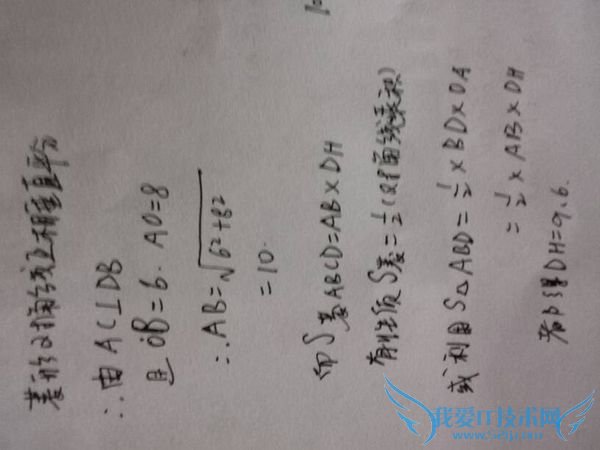 菱形对角线互相垂直平分
∴由AC⊥DB
且OB=6. AO=8
∴AB=√6²+8²
=10.
而S菱ABCD=AB×DH
有性质S菱=½(对角线乘积)
或利用S△ABD=½×BD×OA
=½×AB×DH
都得DH=9.6.
我爱IT技术网